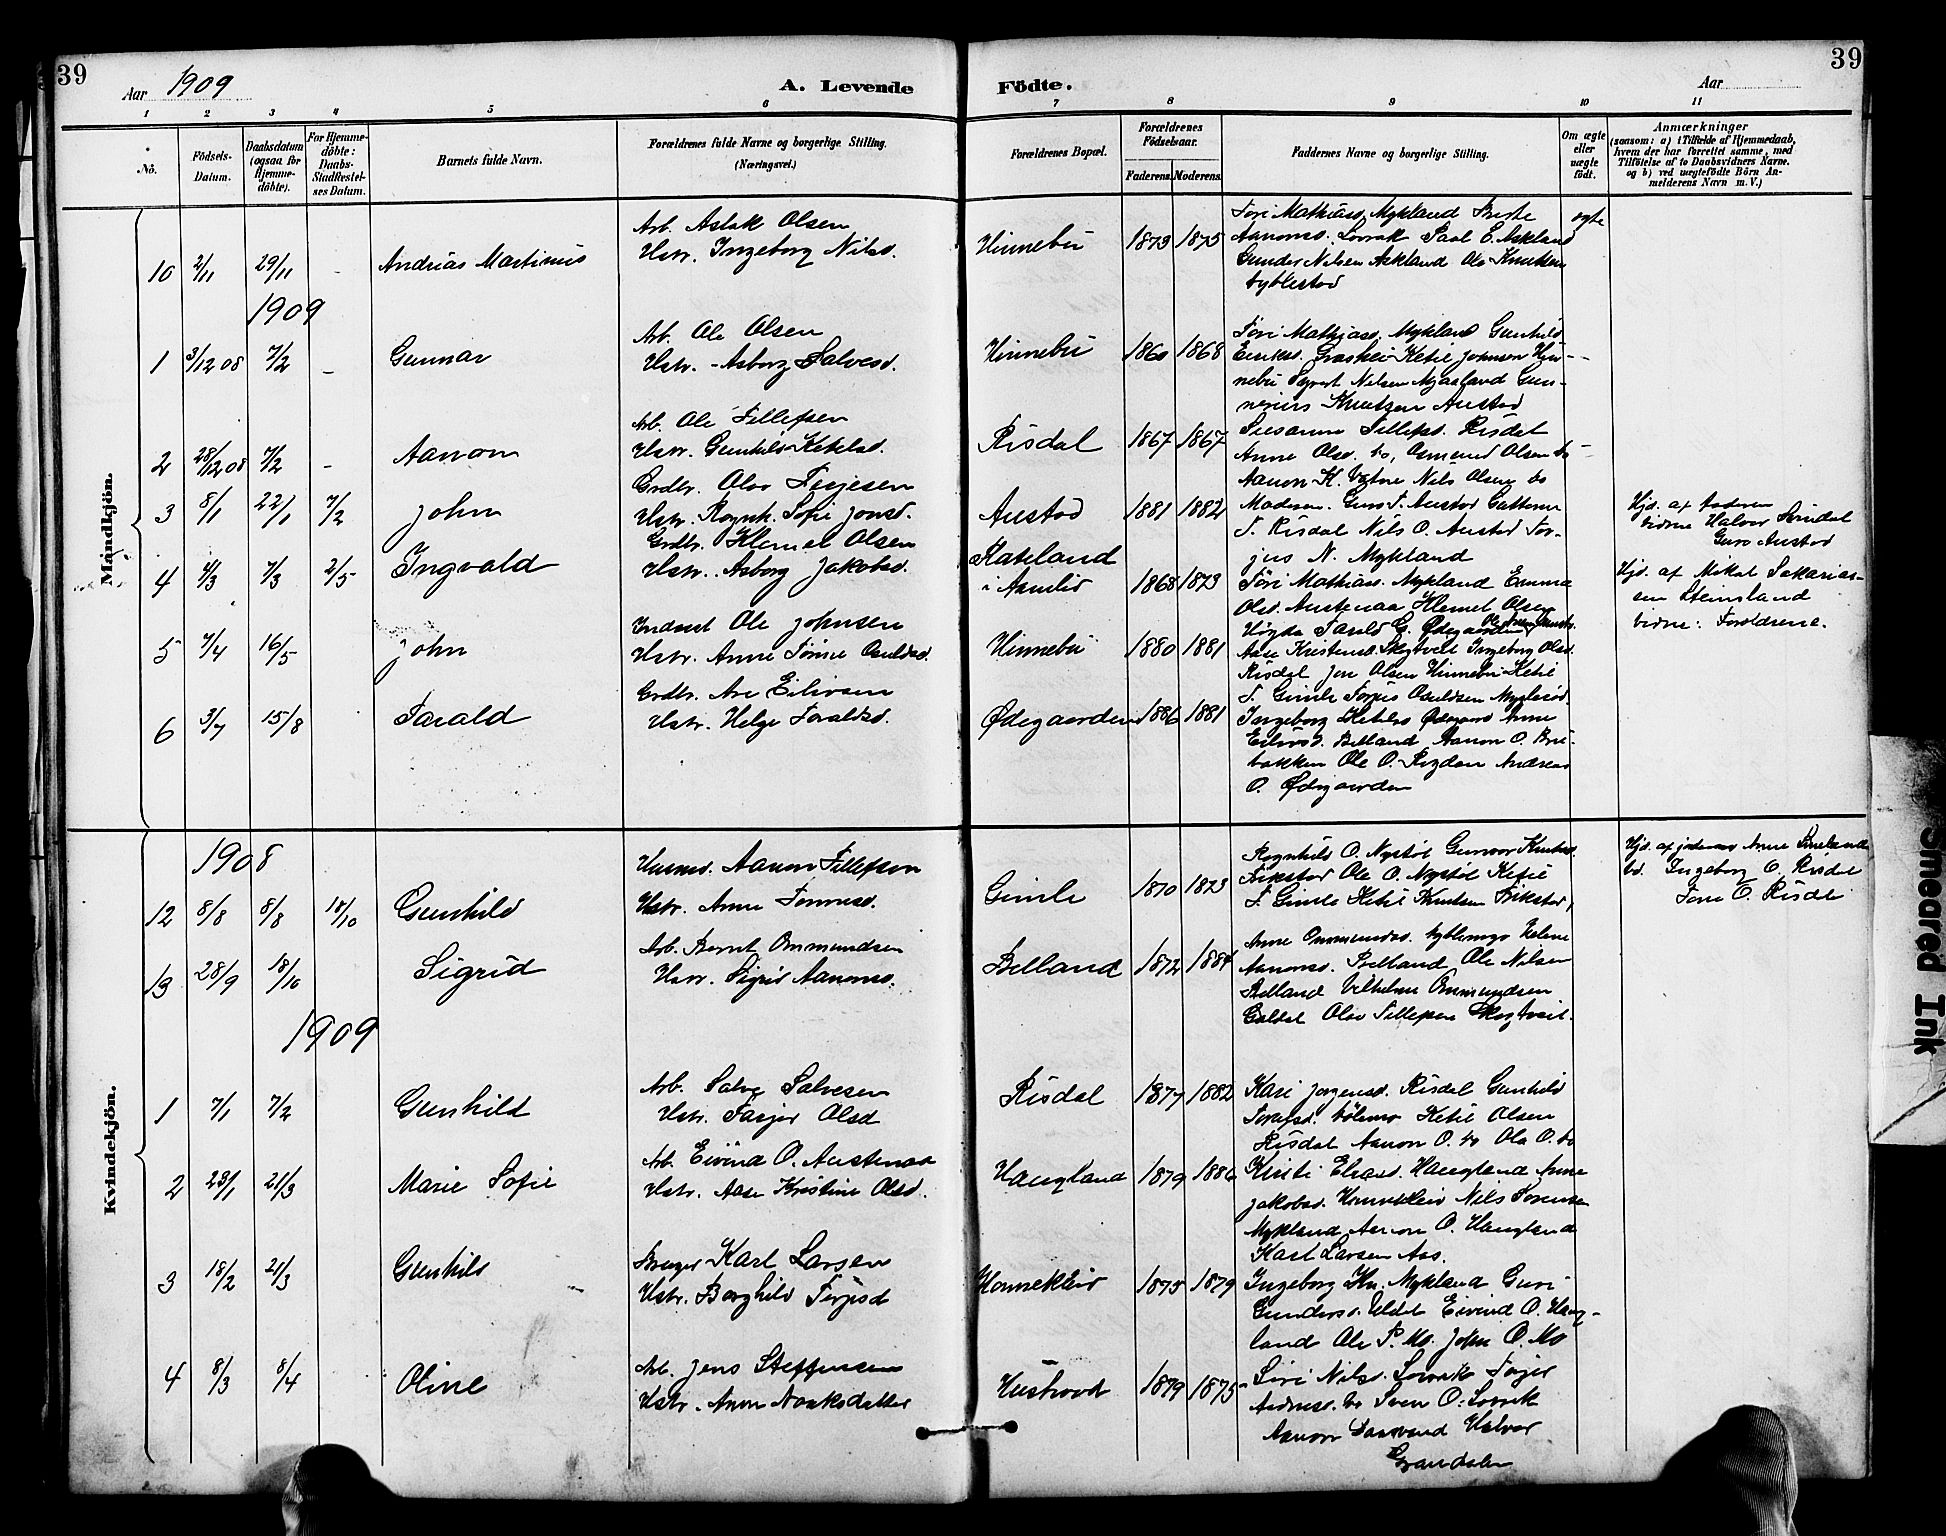 39
Aar 1909
A. Levende
Födte.
Aar
39
1 2 3 4 5 6 7 8 9 10 11
No.
Födsels-
Datum.
Daabsdatum
(ogsaa for
Hjemme-
döbte).
For Hjemme-
döbte:
Daabs-
Stadfæstel-
ses Datum.
Barnets fulde Navn.
Forældrenes fulde Navne og borgerlige Stilling.
(Næringsvei.)
Forældrenes Bopæl.
Forældrenes
Födselsaar.
Faderens. Moderens.
Faddernes Navne og borgerlige Stilling.
Om ægte
eller
uægte
født.
Anmærkninger
(saasom: a) i Tilfælde af Hjemmedaab,
hvem der har forrettet samme, med
Tilföielse af to Daabsvidners Navne,
og b) ved uægtefödte Börn An-
melderens Navn m. V.)
Mandkjön.
10 2/11 29/11 - Andrias Martinius
Arb. Aslak Olsen
Hstr. Ingeborg Nilsd.
Hinnebu 1873 1875
Tori Mathiasd. Mykland Berte
Aanonsd. Lovrak Paal E. Askland
Gunder Nilsen Askland Ole Knutsen
Tyblestad
ægte
1909
1 3/12 08 7/2 - Gunnar
Arb. Ole Olsen
Hstr. - Asborg Salvesd.
Hinnebu 1860 1868
Tori Mathiasd. Mykland Gunhild
Eriksd. Ketil Johnsen Hin-
nebu Nilsen Gun-
nerius Knutsen Austad
2 28/12 08 7/2 - Aanon
Arb. Ole Tellefsen
Hstr. Gunhild Ketilsd.
Risdal 1867 1867
Susanne Tellefsd. Risdal
Anne Olsd. do, Osmund Olsen do
Aanon K. Vatne Nils Olsen do
3 8/1 22/1 7/2 John
Grdbr. Olav Terjesen
Hstr. Ragnh. Sofie Jonsd.
Austad 1881 1882
Moderen. Guro T. Austad
T. Risdal Nils O. Austad Tor-
jus N. Mykland
Hjd. af Faderen
vidne Halvor
Guro Austad
4 4/3 7/3 2/5 Ingvald
Grdbr. Klemet Olsen
Hstr. Asborg Jakobsd.
Rakeland
i Aamlid 1868 1873
Tori Mathiasd. Mykland Emma
Olsd. Austenaa Klemet Olsen
Tarald G. Ødegaarden
Hjd. af Mikal Sakarias-
sen Steinsland
vidne: Foreldrene.
5 7/4 16/5 John
Inderst Ole Johnsen
Hstr. Anne Tomine Osuldsd.
Hinnebu 1880 1881
Aase Kristensd. Skjgtveit Ingeborg Olsd.
Risdal Jon Olsen Hinnebu Ketil
T. Gimle Torjus Osuldsen
6 3/7 15/8 Tarald
Grdbr. Are Eilivsen
Hstr. Helge Taraldsd.
Ødegaarden 1886 1881
Ingeborg Ketilsd Ødegaard Anne
Eilivsd. Belland Aanon O. Bru-
bakken Ole O. Andreas
O. Ødegaarden
Kvindekjön.
1908
12 8/8 8/8 18/10 Gunhild
Husmd. Aanon Tellefsen
Hstr. Anne Tommesd.
Gimle 1870 1873
Ragnhild O. Nystöl Gunvor Knutsd.
Frikstad Ole O. Nystöl Ketil
T. Gimle Ketil Knutsen Frikstad,
Hjd. af jordmor Anne
vd. Ingeborg O. Risdal
Tone O. Risdal
13 28/9 18/10 Sigrid
Arb. Bernt Ommundsen
Hstr. Sigrid Aanonsd.
Belland 1872 1884
Anne Ommundsd. Helene
Aanonsd. Belland Ole Nilsen
Belland Vilhelm Ommundsen
Galdal Olav Tellefsen Skogtveit.
1909
1 7/1 7/2 Gunhild
Arb. Salve Salvesen
Hstr. Tarjer Olsd
Risdal 1877 1882
Kari Jorgensd. Risdal Gunhild
Ketil Olsen
Risdal Aanon O. do Ola O. do
2 23/1 21/3 Marie Sofie
Arb. Eivind O. Austenaa
Hstr. Aase Kristine Olsd.
Haugland 1879 1886
Kristi Eliasd. Haugland Anne
Jakobsd. Honnekleiv Nils Tomine
Mykland Aanon O. Haugland
Karl Larsen Aas.
3 18/2 21/3 Gunhild
Bruger Karl Larsen
Hstr. Borghild Terjesd
Honnekleiv 1875 1879
Ingeborg Kn. Mykland Guri
Gundersd. Uldal Eivind O. Haug-
land Ole P. Mo. John O. Mo
4 8/3 8/4 Oline
Arb. Jens Steffensen
Hstr. Anne Noaksdatter
Hustvedt 1879 1875
Siri Nilsd. Lovrak Torjer
Andersd. do Sven O. Lovrak
Aanon Halvor
Grandalen
Smeared Ink